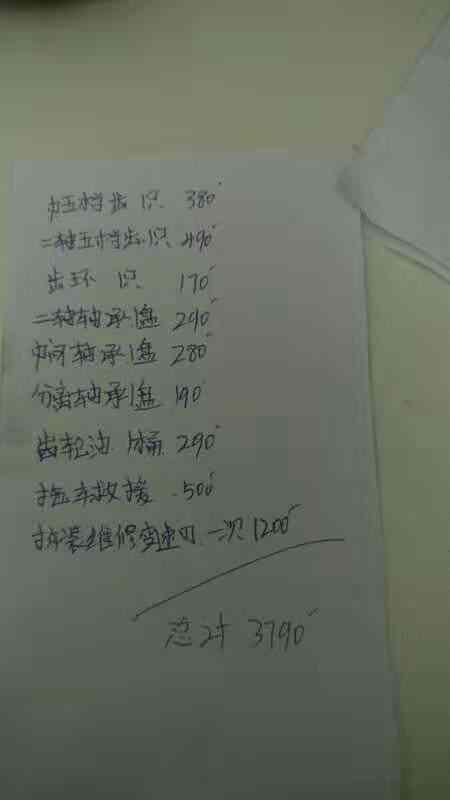 中五档齿1只 380
二轴五档齿1只 490
齿环1只 170
二轴轴承1盘 290
中间轴承1盘 280
分离轴承1盘 190
齿轮油1桶 290
拖车救援 500
拆装维修变速可一次 1200
总计 3790